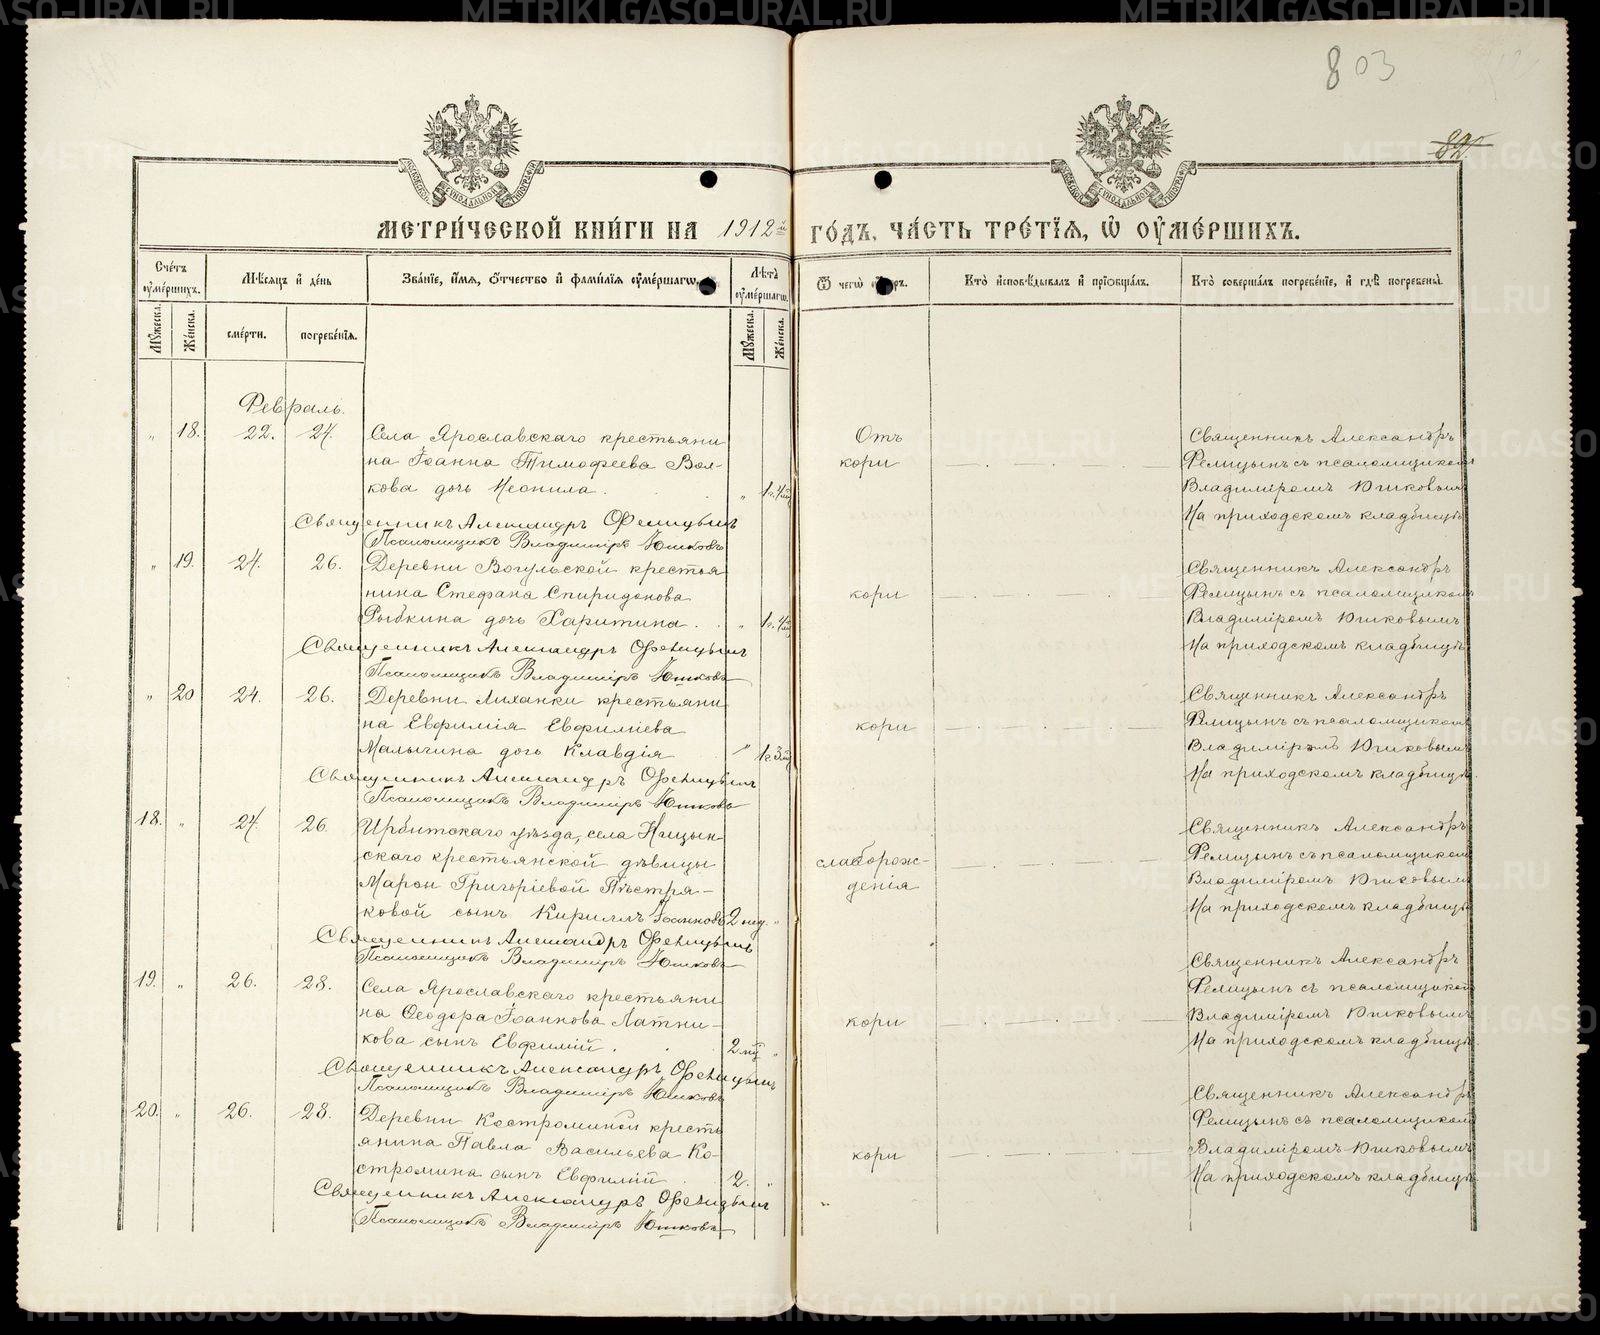 803
82
МЕТРИ́ЧЕСКОЙ КНИ́ГИ НА 1912й ГО́ДЪ, ЧА́СТЬ ТРЕ́ТІЯ, Ѽ ОУ҆МЕ́РШИХЪ.
Сче́тъ оу҆ме́ршихъ.
Мѣ́сяцъ и҆ де́нь
Зва́ніе, и҆́мя, ѻ҆́тчество и҆ фами́лія оу҆ме́ршагѡ.
Лѣ́та оу҆ме́ршагѡ.
Ѿ чегѡ̀
Кто̀ и҆сповѣ́дывалъ и҆ прїѡбща́лъ.
Кто̀ соверша́лъ погребе́ніе, и҆ гдѣ̀ погребены̀.
Му́жеска.
Же́нска.
сме́рти.
погребе́нія.
Му́жеска.
Же́нска.
Февраль.
" 18. 22. 24. Села Ярославскаго крестьяни
на Іоанна Тимофеева Вол-
кова дочь Неонила. " 1г. 4м
Отъ
кори
Священникъ Александръ
Феницынъ съ псаломщикомъ
Владиміромъ Юшковымъ
На приходскомъ кладбищѣ
Священникъ Александръ Фѣницынъ
Псаломщикъ Владиміръ Юшковъ
" 19. 24. 26. Деревни Вогульской крестья
нина Стефана Спиридонова
Рыбкина дочь Харитина. " 1г. 4м
кори
Священникъ Александръ
Феницынъ съ псаломщикомъ
Владиміромъ Юшковымъ
На приходскомъ кладбищѣ
Священникъ Александръ Фѣницынъ
Псаломщикъ Владиміръ Юшковъ
" 20 24. 26. Деревни Лиханки крестьяни
на Евфимія Евфиміева
Малыгина дочь Клавдія " 1г 3м
кори
Священникъ Александръ
Феницынъ съ псаломщикомъ
Владиміромъ Юшковымъ
На приходскомъ кладбищѣ.
Священникъ Александръ Фѣницынъ
Псаломщикъ Владиміръ Юшковъ
18. " 24. 26. Ирбитскаго уѣзда, села Ницын-
скаго крестьянской дѣвицы
Марѳы Григоріевой Пѣстря-
ковой сынъ Кириллъ Іоанновъ 2 нед. "
слаборож-
денія
Священникъ Александръ
Феницынъ съ псаломщикомъ
Владиміромъ Юшковымъ
На приходскомъ кладбищѣ
Священникъ Александръ Фѣницынъ
Псаломщикъ Владиміръ Юшковъ
19. " 26. 28. Села Ярославскаго крестьяни
на Ѳеодора Іоаннова Латни-
кова сынъ Евфимій. 2 "
кори
Священникъ Александръ
Феницынъ съ псаломщикомъ
Владиміромъ Юшковымъ
На приходскомъ кладбищѣ.
Священникъ Александръ Фѣницынъ
Псаломщикъ Владиміръ Юшковъ
20. " 26. 28. Деревни Костроминой кресть
янина Павла Васильева Ко-
стромина сынъ Евфимій 2. "
кори
Священникъ Александръ
Феницынъ съ псаломщикомъ
Владиміромъ Юшковымъ
На приходскомъ кладбищѣ
Священникъ Александръ Фѣницынъ
Псаломщикъ Владиміръ Юшковъ
METRIKI.GASO-URAL.RU